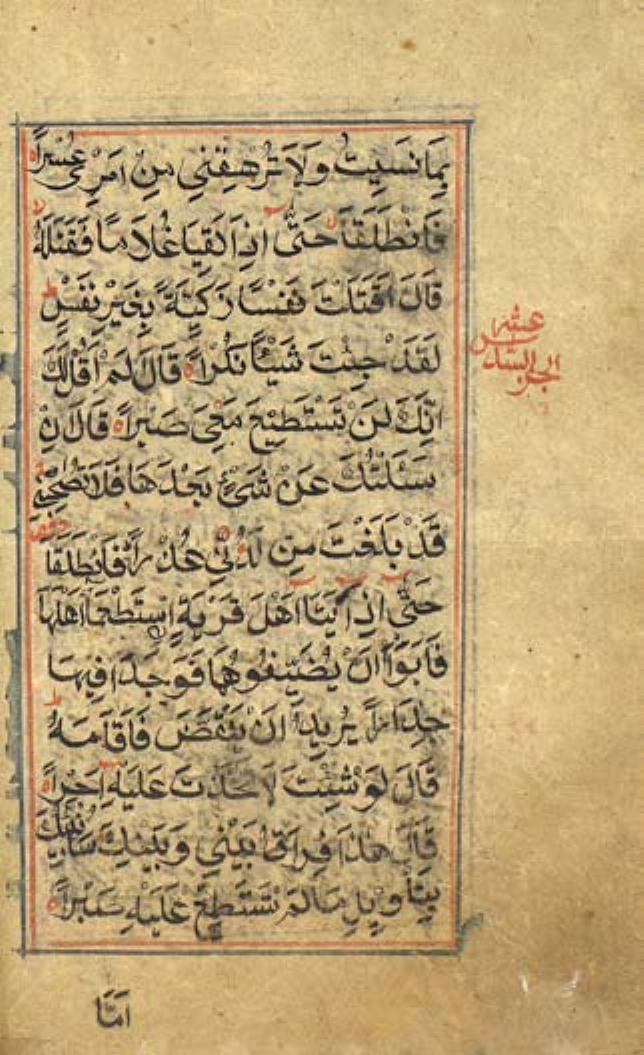 بِمَا نَسِيتُ وَلَا تُرْهِقْنِي مِنْ اَمْرِي عُسْرًا
فَانْطَلَقَا حَتَّى اِذَا لَقِيَا غُلَامًا فَقَتَلَهُ
قَالَ اَقَتَلْتَ نَفْسًا زَكِيَّةً بِغَيْرِ نَفْسٍ
لَقَدْ جِئْتَ شَيْئًا نُكْرًا قَالَ لَمْ اَقُلْ لَكَ
اِنَّكَ لَنْ تَسْتَطِيعَ مَعِيَ صَبْرًا قَالَ اِنْ
سَئَلْتُكَ عَنْ شَيْءٍ بَعْدَهَا فَلَا تُصٰحِبْنِي
قَدْ بَلَغْتَ مِنْ لَدُنِّي عُذْرًا فَانْطَلَقَا
حَتَّى اِذَا اَتَيَا اَهْلَ قَرْيَةٍ اِسْتَطْعَمَا اَهْلَهَا
فَاَبَوْا اَنْ يُضَيِّفُوهُمَا فَوَجَدَا فِيهَا
جِدَارًا يُرِيدُ اَنْ يَنْقَضَّ فَاَقَامَهُ
قَالَ لَوْ شِئْتَ لَتَّخَذْتَ عَلَيْهِ اَجْرًا
قَالَ هٰذَا فِرَاقُ بَيْنِي وَبَيْنِكَ سَاُنَبِّئُكَ
بِتَأْوِيلِ مَا لَمْ تَسْتَطِعْ عَلَيْهِ صَبْرًا
اَمَّا
الجزء السادس
عشر